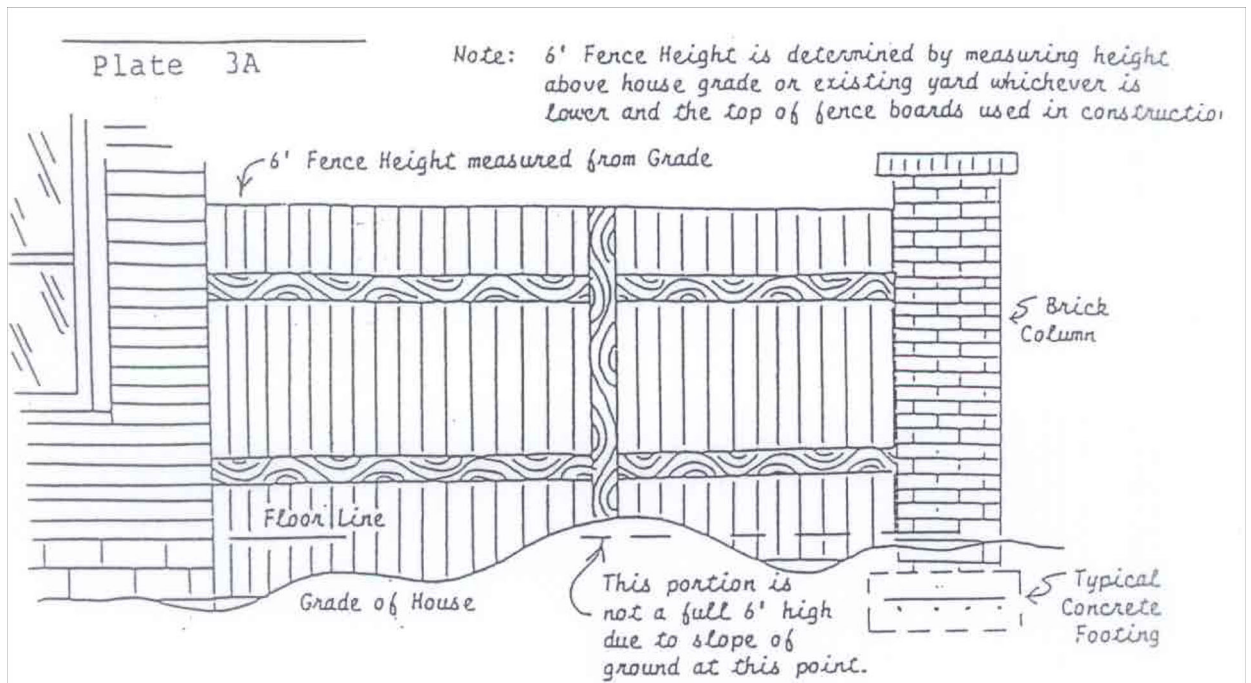 Plate 3A
Note: 6' Fence Height is determined by measuring height
above house grade or existing yard whichever is
lower and the top of fence boards used in constructio
6' Fence Height measured from Grade
Brick
Column
Floor Line
Grade of House
This portion is
not a full 6' high
due to slope of
ground at this point.
Typical
Concrete
Footing